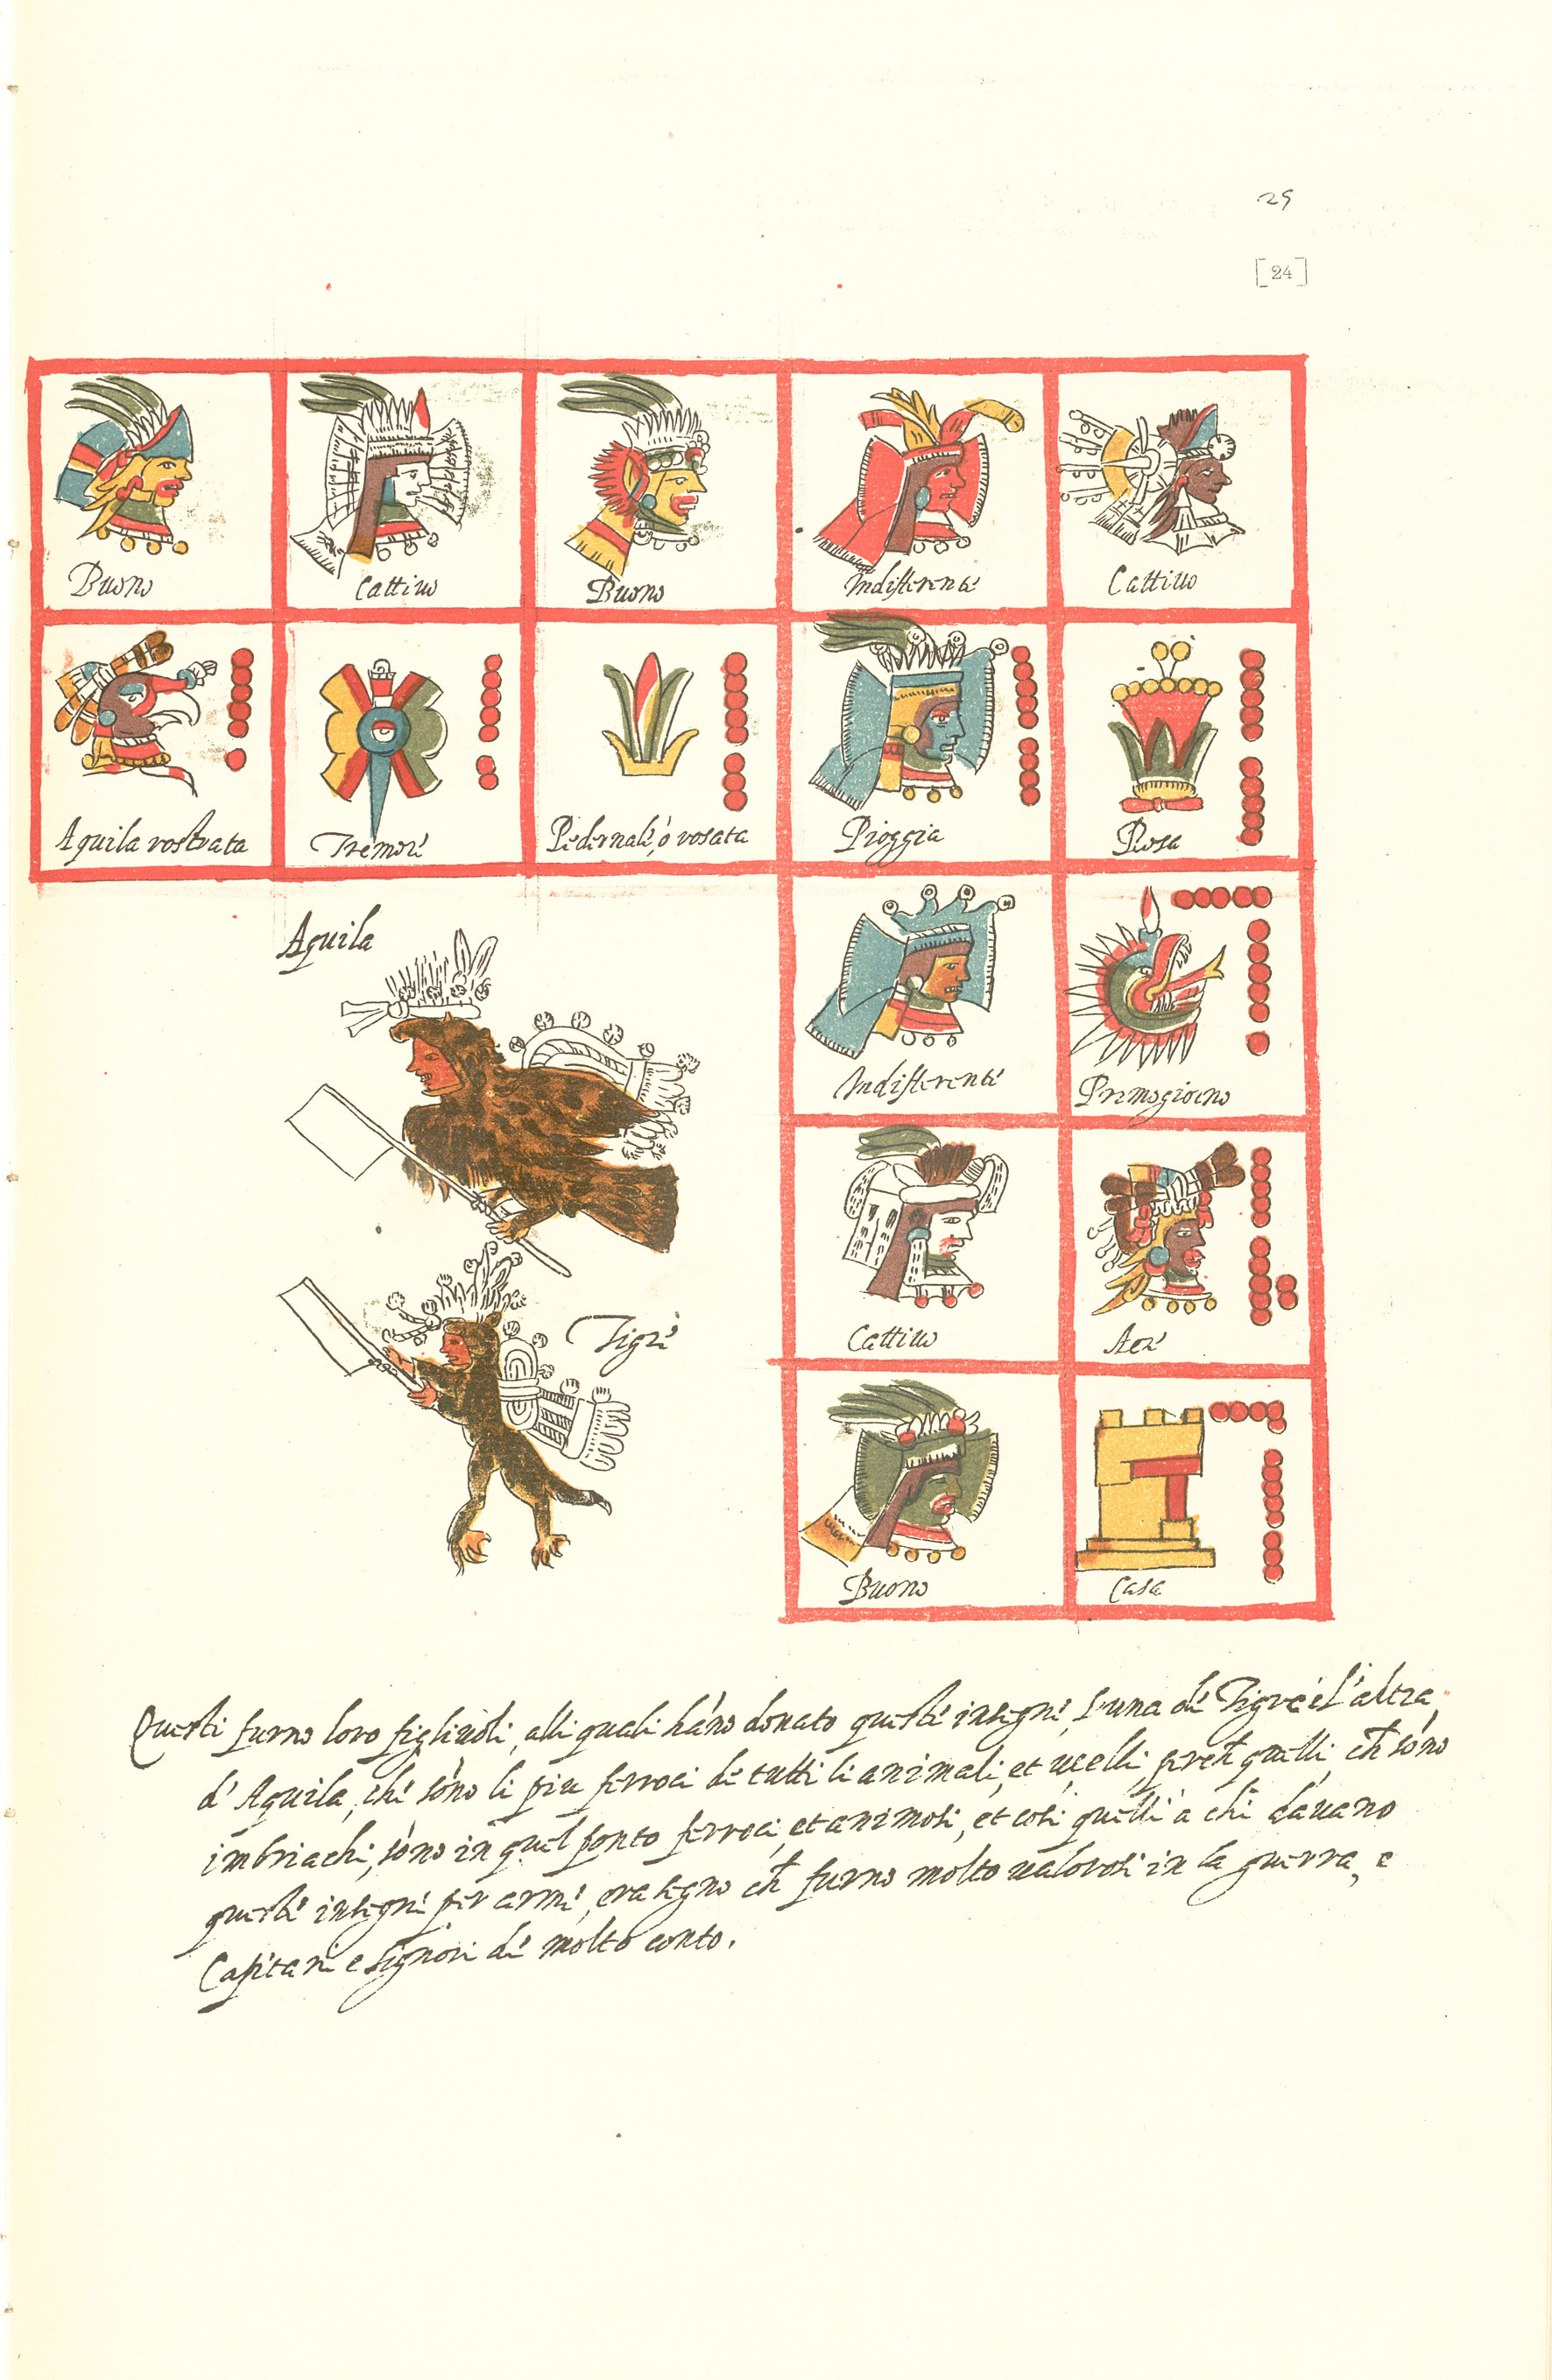 25
[24]
Buono
Cattiuo
Buono
Indifferenté
Cattiuo
Aquila rostrata
Tremoré
Pedernalé, ó rosata
Pioggia
Rosa
Aquila
Indifferenté
Primogiorno
Cattiuo
Aeré
Tigré
Buono
Casa
Questi furno loro figliuoli, alli quali háno donato questé insegné, l'una dé Tigre é l'altra,
d'Aquila, ché sóno li piu ferroci dé tutti li animali, et uccelli, perch̃ quelli, ch̃ sóno
imbriachi, sóno in quel ponto ferroci, et animosi, et cosi quelli a chi dauano
questé insegné per armé, era segno ch̃ furno molto ualorosi in la guerra, e
Capitani e signori dé molto conto.